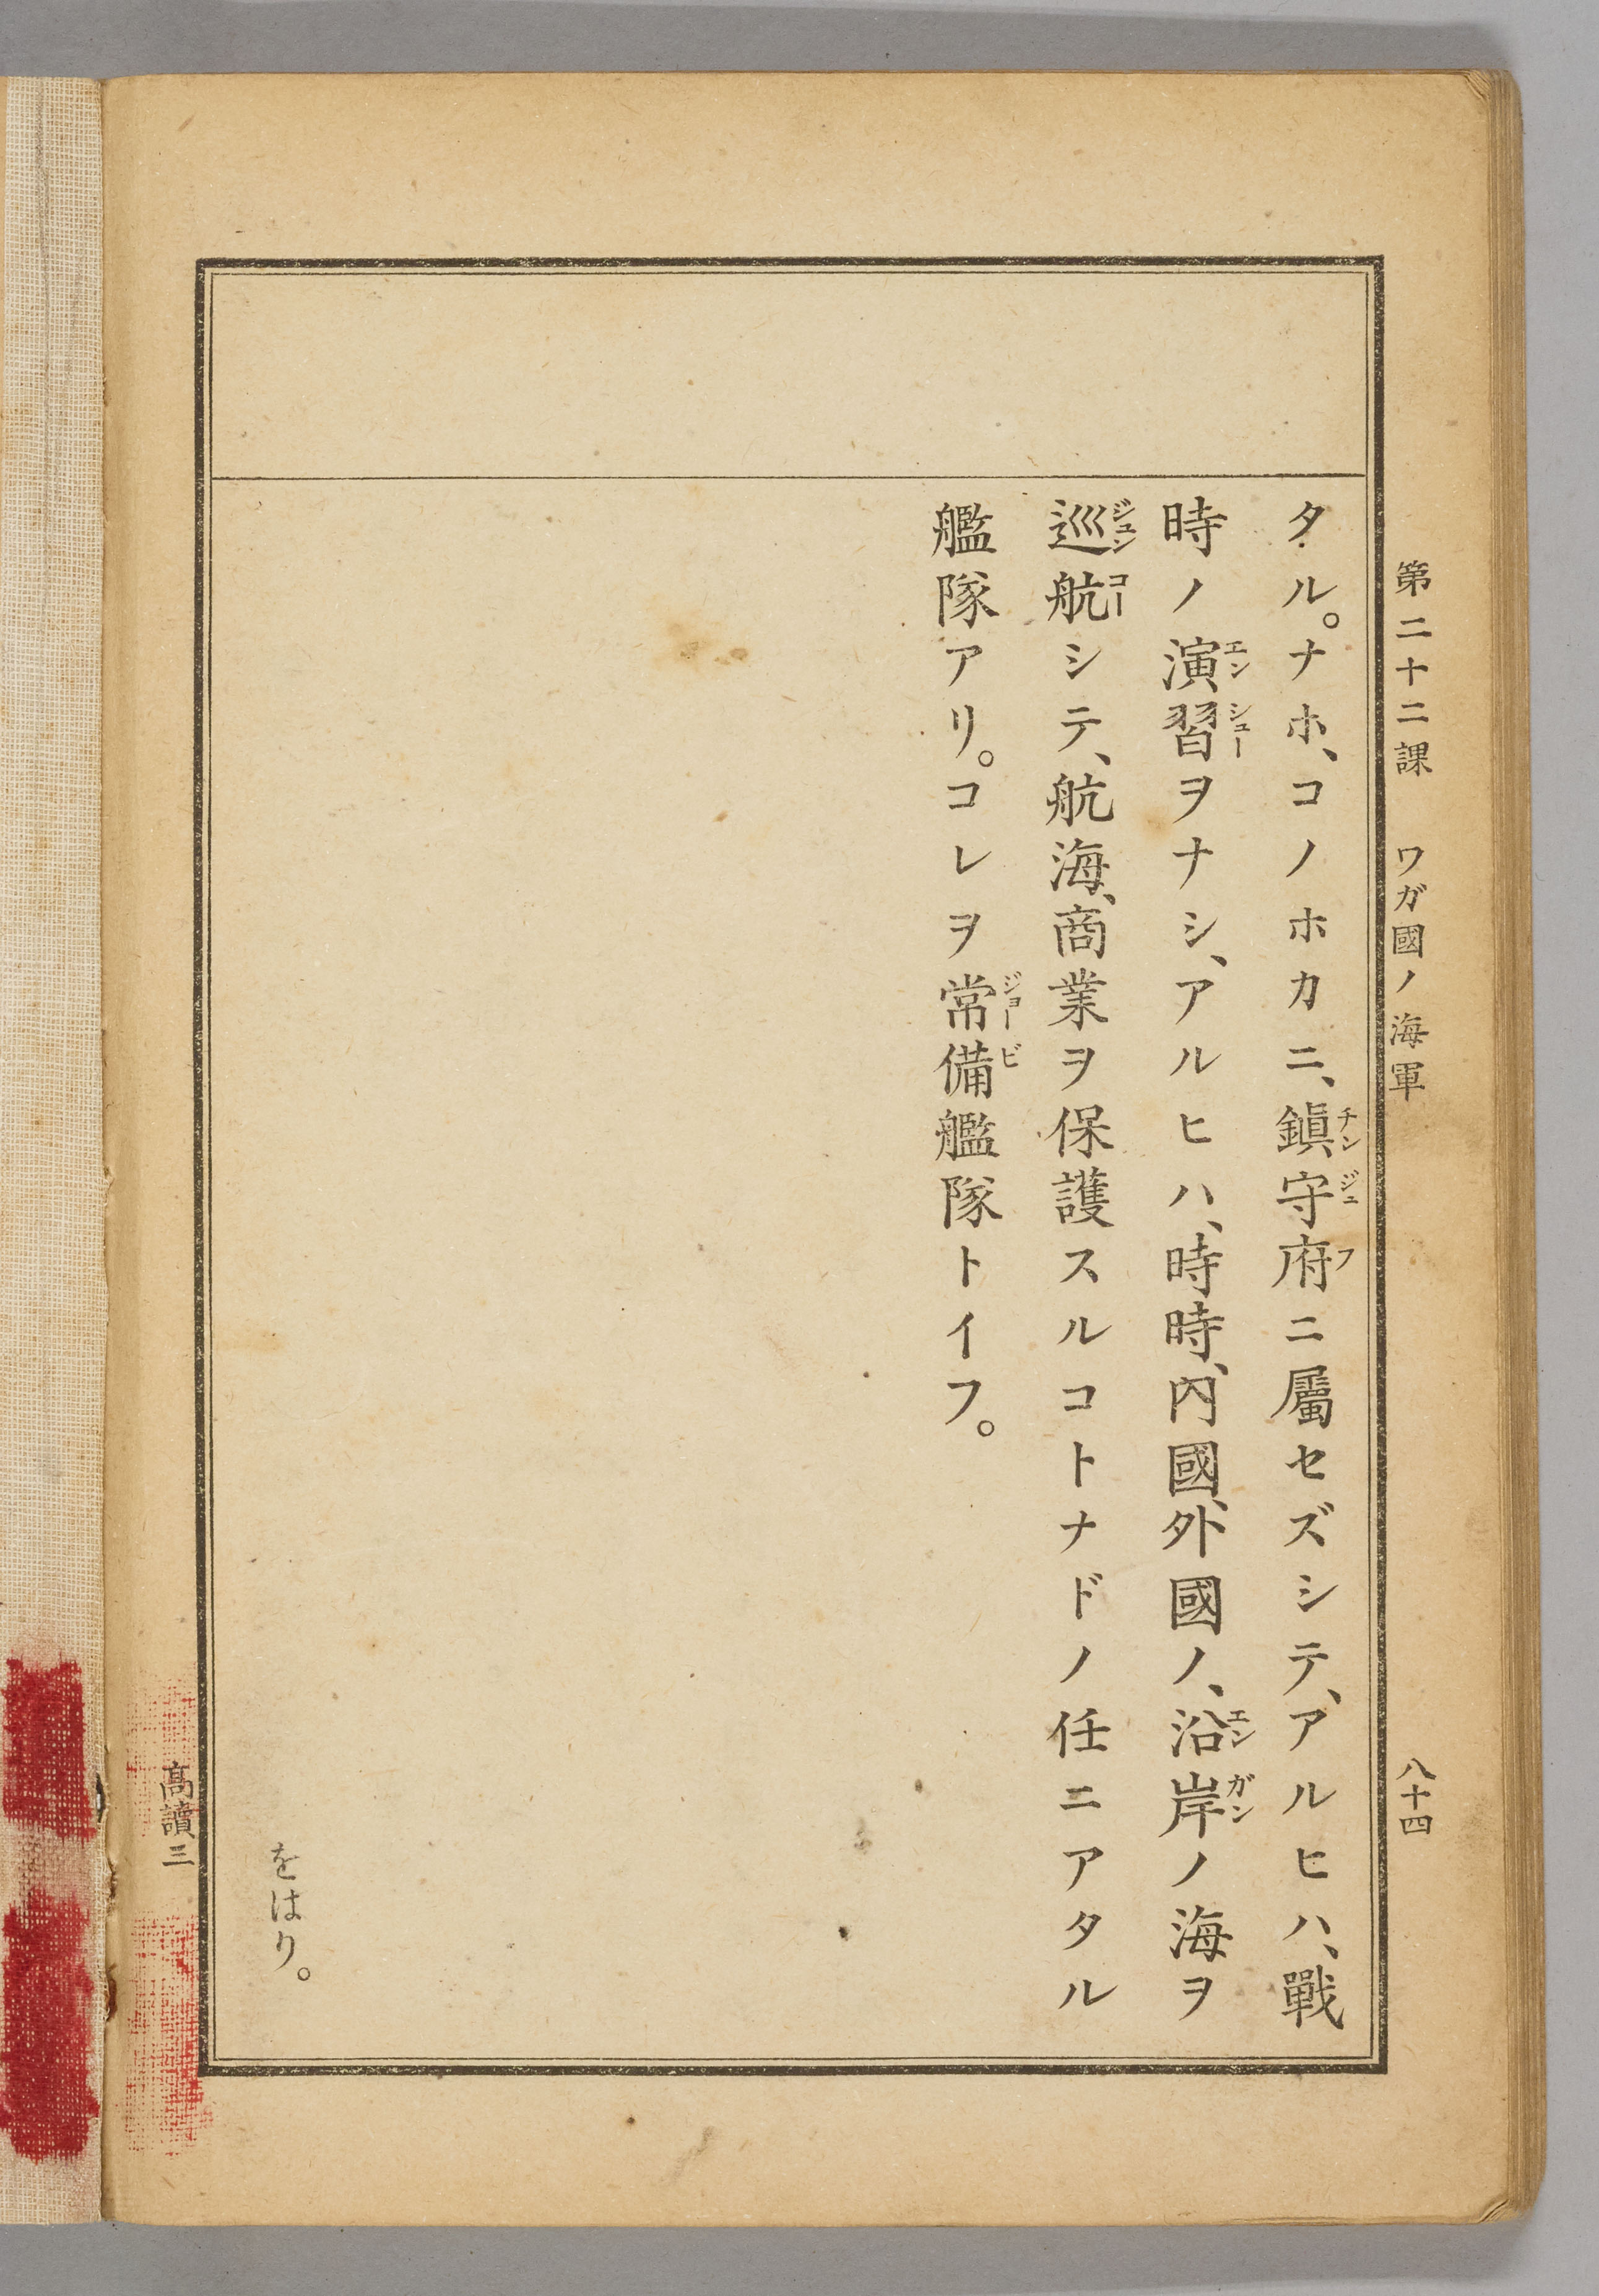 第二十二課 ワガ國ノ海軍 八十四
タル。ナホ、コノホカニ、鎭守府ニ屬セズシテ、アルヒハ、戰
チンジュフ
時ノ演習ヲナシ、アルヒハ、時時、内國、外國ノ、沿岸ノ海ヲ
エンシュー エンガン
巡航シテ、航海、商業ヲ保護スルコトナドノ任ニアタル
ジュンコー
艦隊アリ。コレヲ常備艦隊トイフ。
ジョービ
をはり。
高讀三